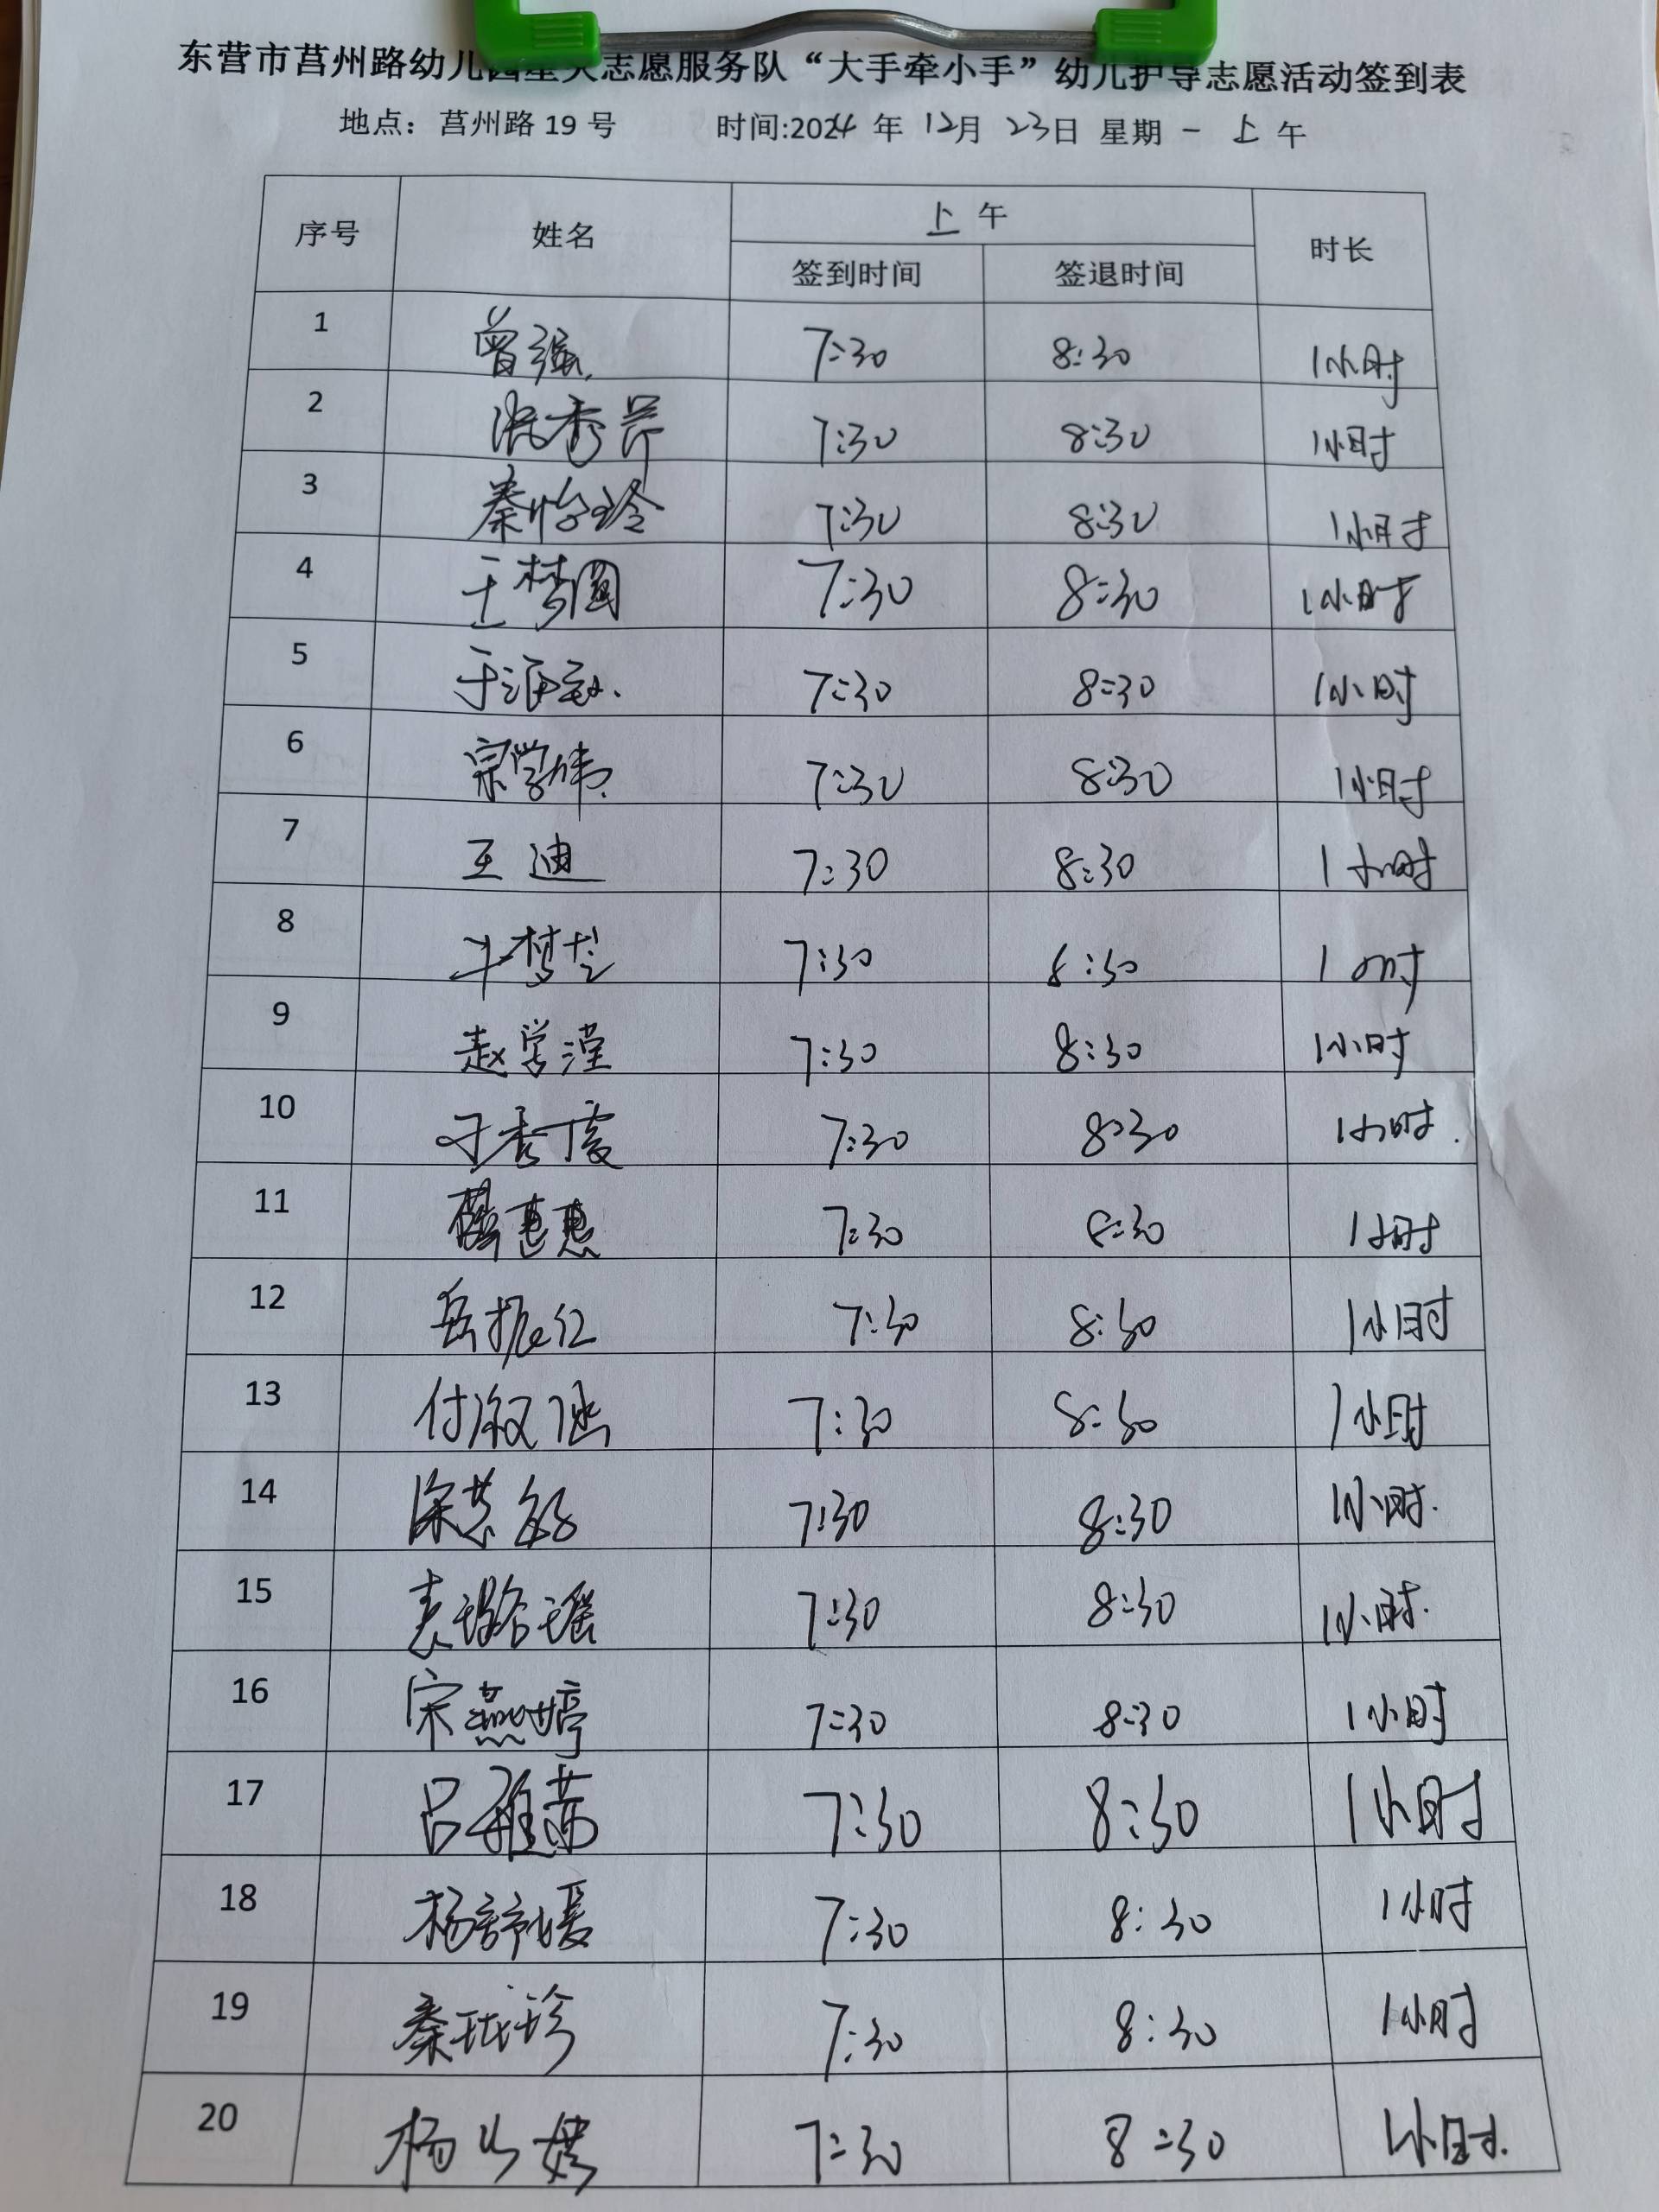 东营市莒州路幼儿园星火志愿服务队“大手牵小手”幼儿护导志愿活动签到表
地点：莒州路 19 号 时间:2024 年 12月 23日 星期 一 上 午
序号 姓名 上 午 时长
签到时间 签退时间
1 曾强 7:30 8:30 1小时
2 秀芹 7:30 8:30 1小时
3 秦怡玲 7:30 8:30 1小时
4 王梦圆 7:30 8:30 1小时
5 于海 7:30 8:30 1小时
6 宗学伟 7:30 8:30 1小时
7 王迪 7:30 8:30 1小时
8 梦 7:30 8:30 1小时
9 赵学滢 7:30 8:30 1小时
10 于秀霞 7:30 8:30 1小时.
11 惠惠 7:30 8:30 1小时
12 岳振红 7:30 8:30 1小时
13 付淑涵 7:30 8:30 1小时
14 徐慧敏 7:30 8:30 1小时.
15 袁璐瑶 7:30 8:30 1小时.
16 宋燕婷 7:30 8:30 1小时
17 吕雅茹 7:30 8:30 1小时
18 杨舒媛 7:30 8:30 1小时
19 秦珑珍 7:30 8:30 1小时
20 杨 7:30 8:30 1小时.